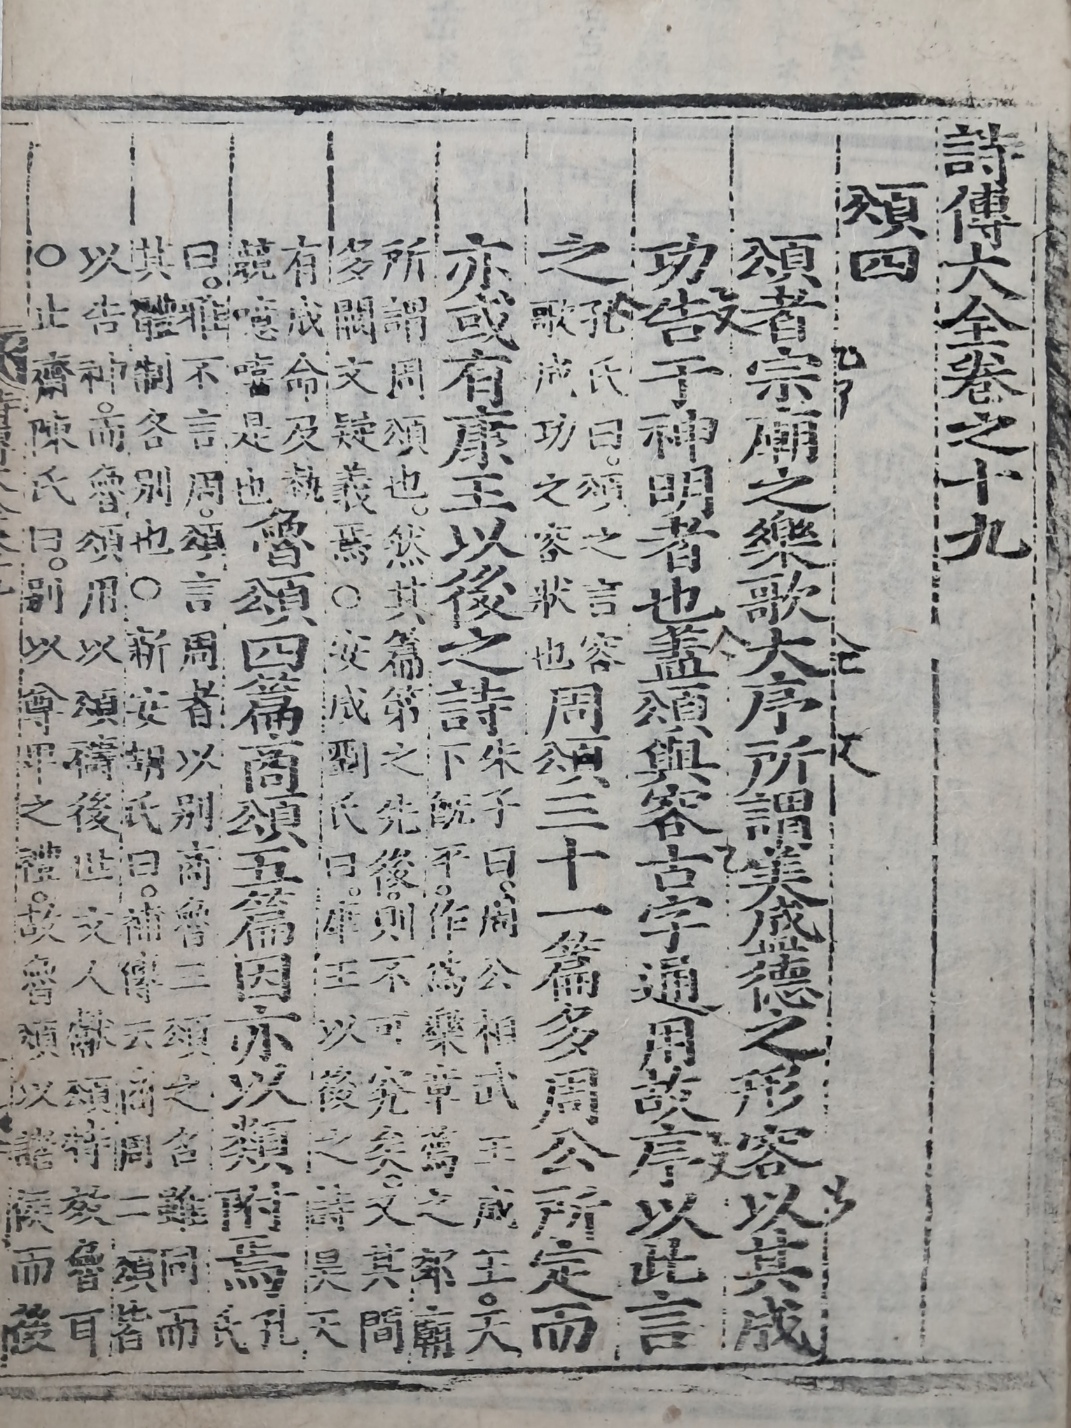 詩傳大全卷之十九
頌四
頌者宗廟之樂歌大序所謂美盛德之形容以其成
功告于神明者也蓋頌與容古字通用故序以此言
之
孔氏曰頌之言容
歌成功之容狀也
周頌三十一篇多周公所定而
亦或有康王以後之詩
朱子曰周公相武王成王天
下旣平作爲樂章薦之郊廟
所謂周頌也然其篇第之先後則不可究矣又其間
多闕文疑義焉○安成劉氏曰康王以後之詩昊天
有成命及執
競噫嘻是也
魯頌四篇商頌五篇因亦以類附焉
孔
氏
曰雅不言周頌言周者以别商魯三頌之名雖同而
其體制各别也○新安胡氏曰補傳云商周二頌皆
以告神而魯頌用以頌禱後世文人獻頌特效魯耳
○止齋陳氏曰别以尊卑之禮故魯頌以諸侯而後